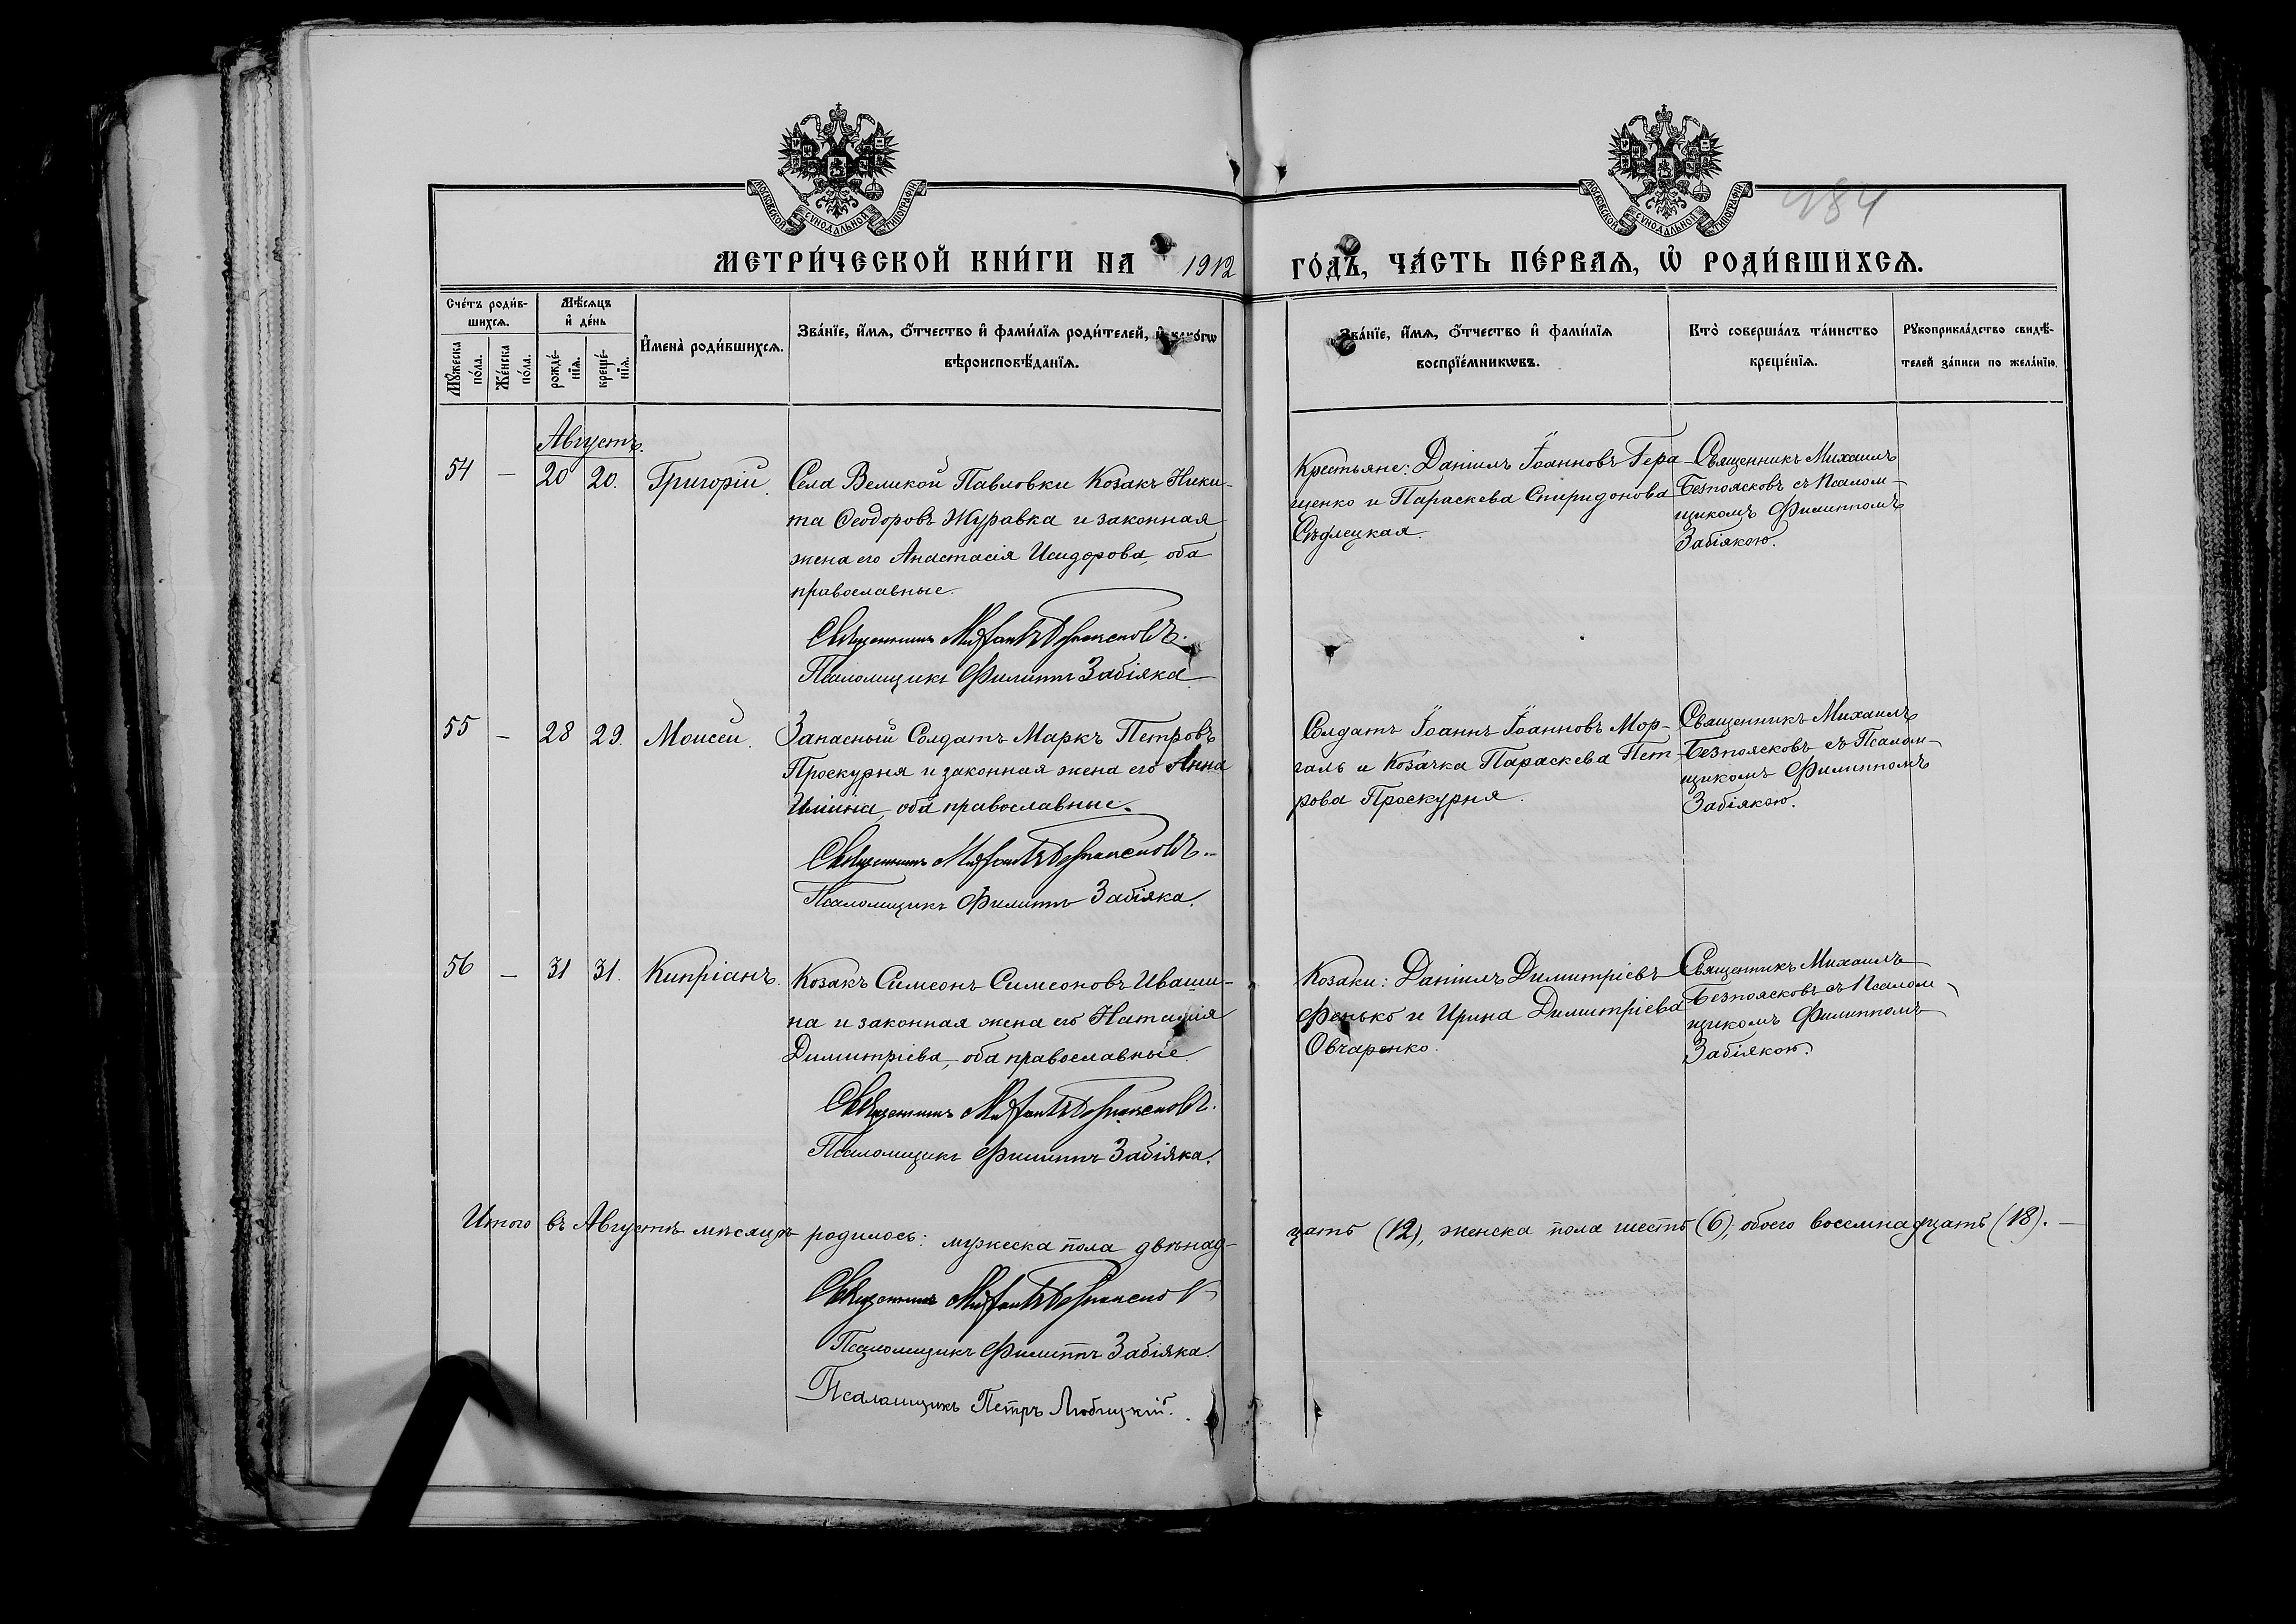 МОСКОВСКОЙ СУНОДАЛЬНОЙ ТИПОГРАФІИ
МОСКОВСКОЙ СУНОДАЛЬНОЙ ТИПОГРАФІИ
484
МЕТРИ́ЧЕСКОЙ КНИ́ГИ НА 1912 ГО́ДЪ, ЧА́СТЬ ПЕ́РВАѦ, Ѡ҆ РОДИ́ВШИХСѦ.
Сче́тъ роди́в-
шихсѧ.
Мѣ́сѧцъ
и҆ де́нь
И҆мена̀ роди́вшихсѧ.
Зва́нїе, и҆́мѧ, ѻ҆́тчество и҆ фами́лїѧ роди́телей, и҆ како́гѡ
вѣроисповѣ́данїѧ.
Зва́нїе, и҆́мѧ, ѻ҆́тчество и҆ фами́лїѧ
воспрїе́мникѡвъ.
Кто̀ соверша́лъ та́инство
креще́нїѧ.
Рꙋкоприкла́дство свидѣ́-
телей за́писи по жела́нїю.
Мꙋ́жеска
по́ла.
Же́нска
по́ла.
рожде́-
нїѧ.
креще́-
нїѧ.
Августъ.
54 — 20 20. Григорій. Села Великой Павловки Козакъ Ники-
та Ѳеодоровъ Журавка и законная
жена его Анастасія Исидорова, оба
православные.
Священникъ Михаилъ Безпоясковъ.
Псаломщикъ Филиппъ Забіяка.
Крестьяне: Даніилъ Іоанновъ Гера-
щенко и Параскева Спиридонова
Сѣдлецкая.
Священникъ Михаилъ
Безпоясковъ съ Псалом-
щикомъ Филиппомъ
Забіякою.
55 — 28 29. Моисей. Запасный Солдатъ Маркъ Петровъ
Проскурня и законная жена его Анна
Иліина, оба православные.
Священникъ Михаилъ Безпоясковъ.
Псаломщикъ Филиппъ Забіяка.
Солдатъ Іоаннъ Іоанновъ Мор-
галь и Козачка Параскева Пет-
рова Проскурня.
Священникъ Михаилъ
Безпоясковъ съ Псалом-
щикомъ Филиппомъ
Забіякою.
56 — 31 31. Кипріанъ. Козакъ Симеонъ Симеоновъ Иваши-
на и законная жена его Наталія
Димитріева, оба православные.
Священникъ Михаилъ Безпоясковъ.
Псаломщикъ Филиппъ Забіяка.
Козаки: Даніилъ Димитріевъ
Фенько и Ирина Димитріева
Овчаренко.
Священникъ Михаилъ
Безпоясковъ съ Псалом-
щикомъ Филиппомъ
Забіякою.
Итого въ Августѣ мѣсяцѣ родилось: мужеска пола двѣнад-
цать (12), женска пола шесть (6), обоего восемнадцать (18). —
Священникъ Михаилъ Безпоясковъ
Псаломщикъ Филиппъ Забіяка.
Псаломщикъ Петръ Любицкій.